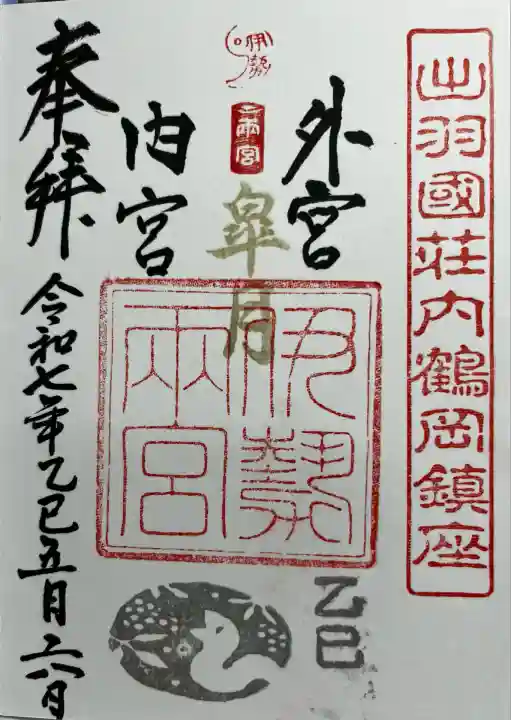 出羽國荘内鶴岡鎮座
外宮
伊勢
両宮
皐月
伊勢
兩宮
乙巳
内宮
奉拝
令和七年乙巳五月六日